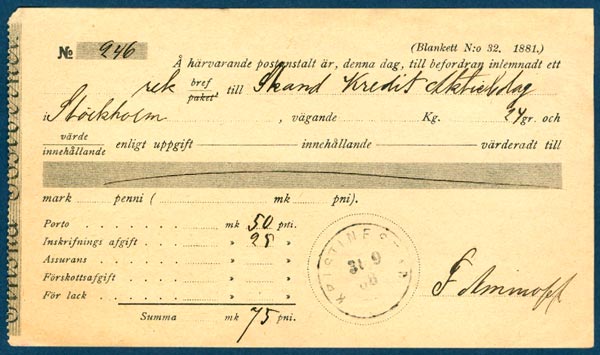 № 246
(Blankett N:o 32. 1881.)
Å härvarande postanstalt är, denna dag, till befordran inlemnadt ett
rek bref/paket till Skand Kredit Aktiebolag
i Stockholm, vägande Kg. 24 gr. och
värde/innehållande enligt uppgift innehållande värderadt till
mark penni ( mk pni).
Porto mk 50 pni.
Inskrifnings afgift » 25 »
Assurans » »
Förskottsafgift » »
För lack » »
Summa mk 75 pni.
KRISTINESTAD
31 9
F Ammoff